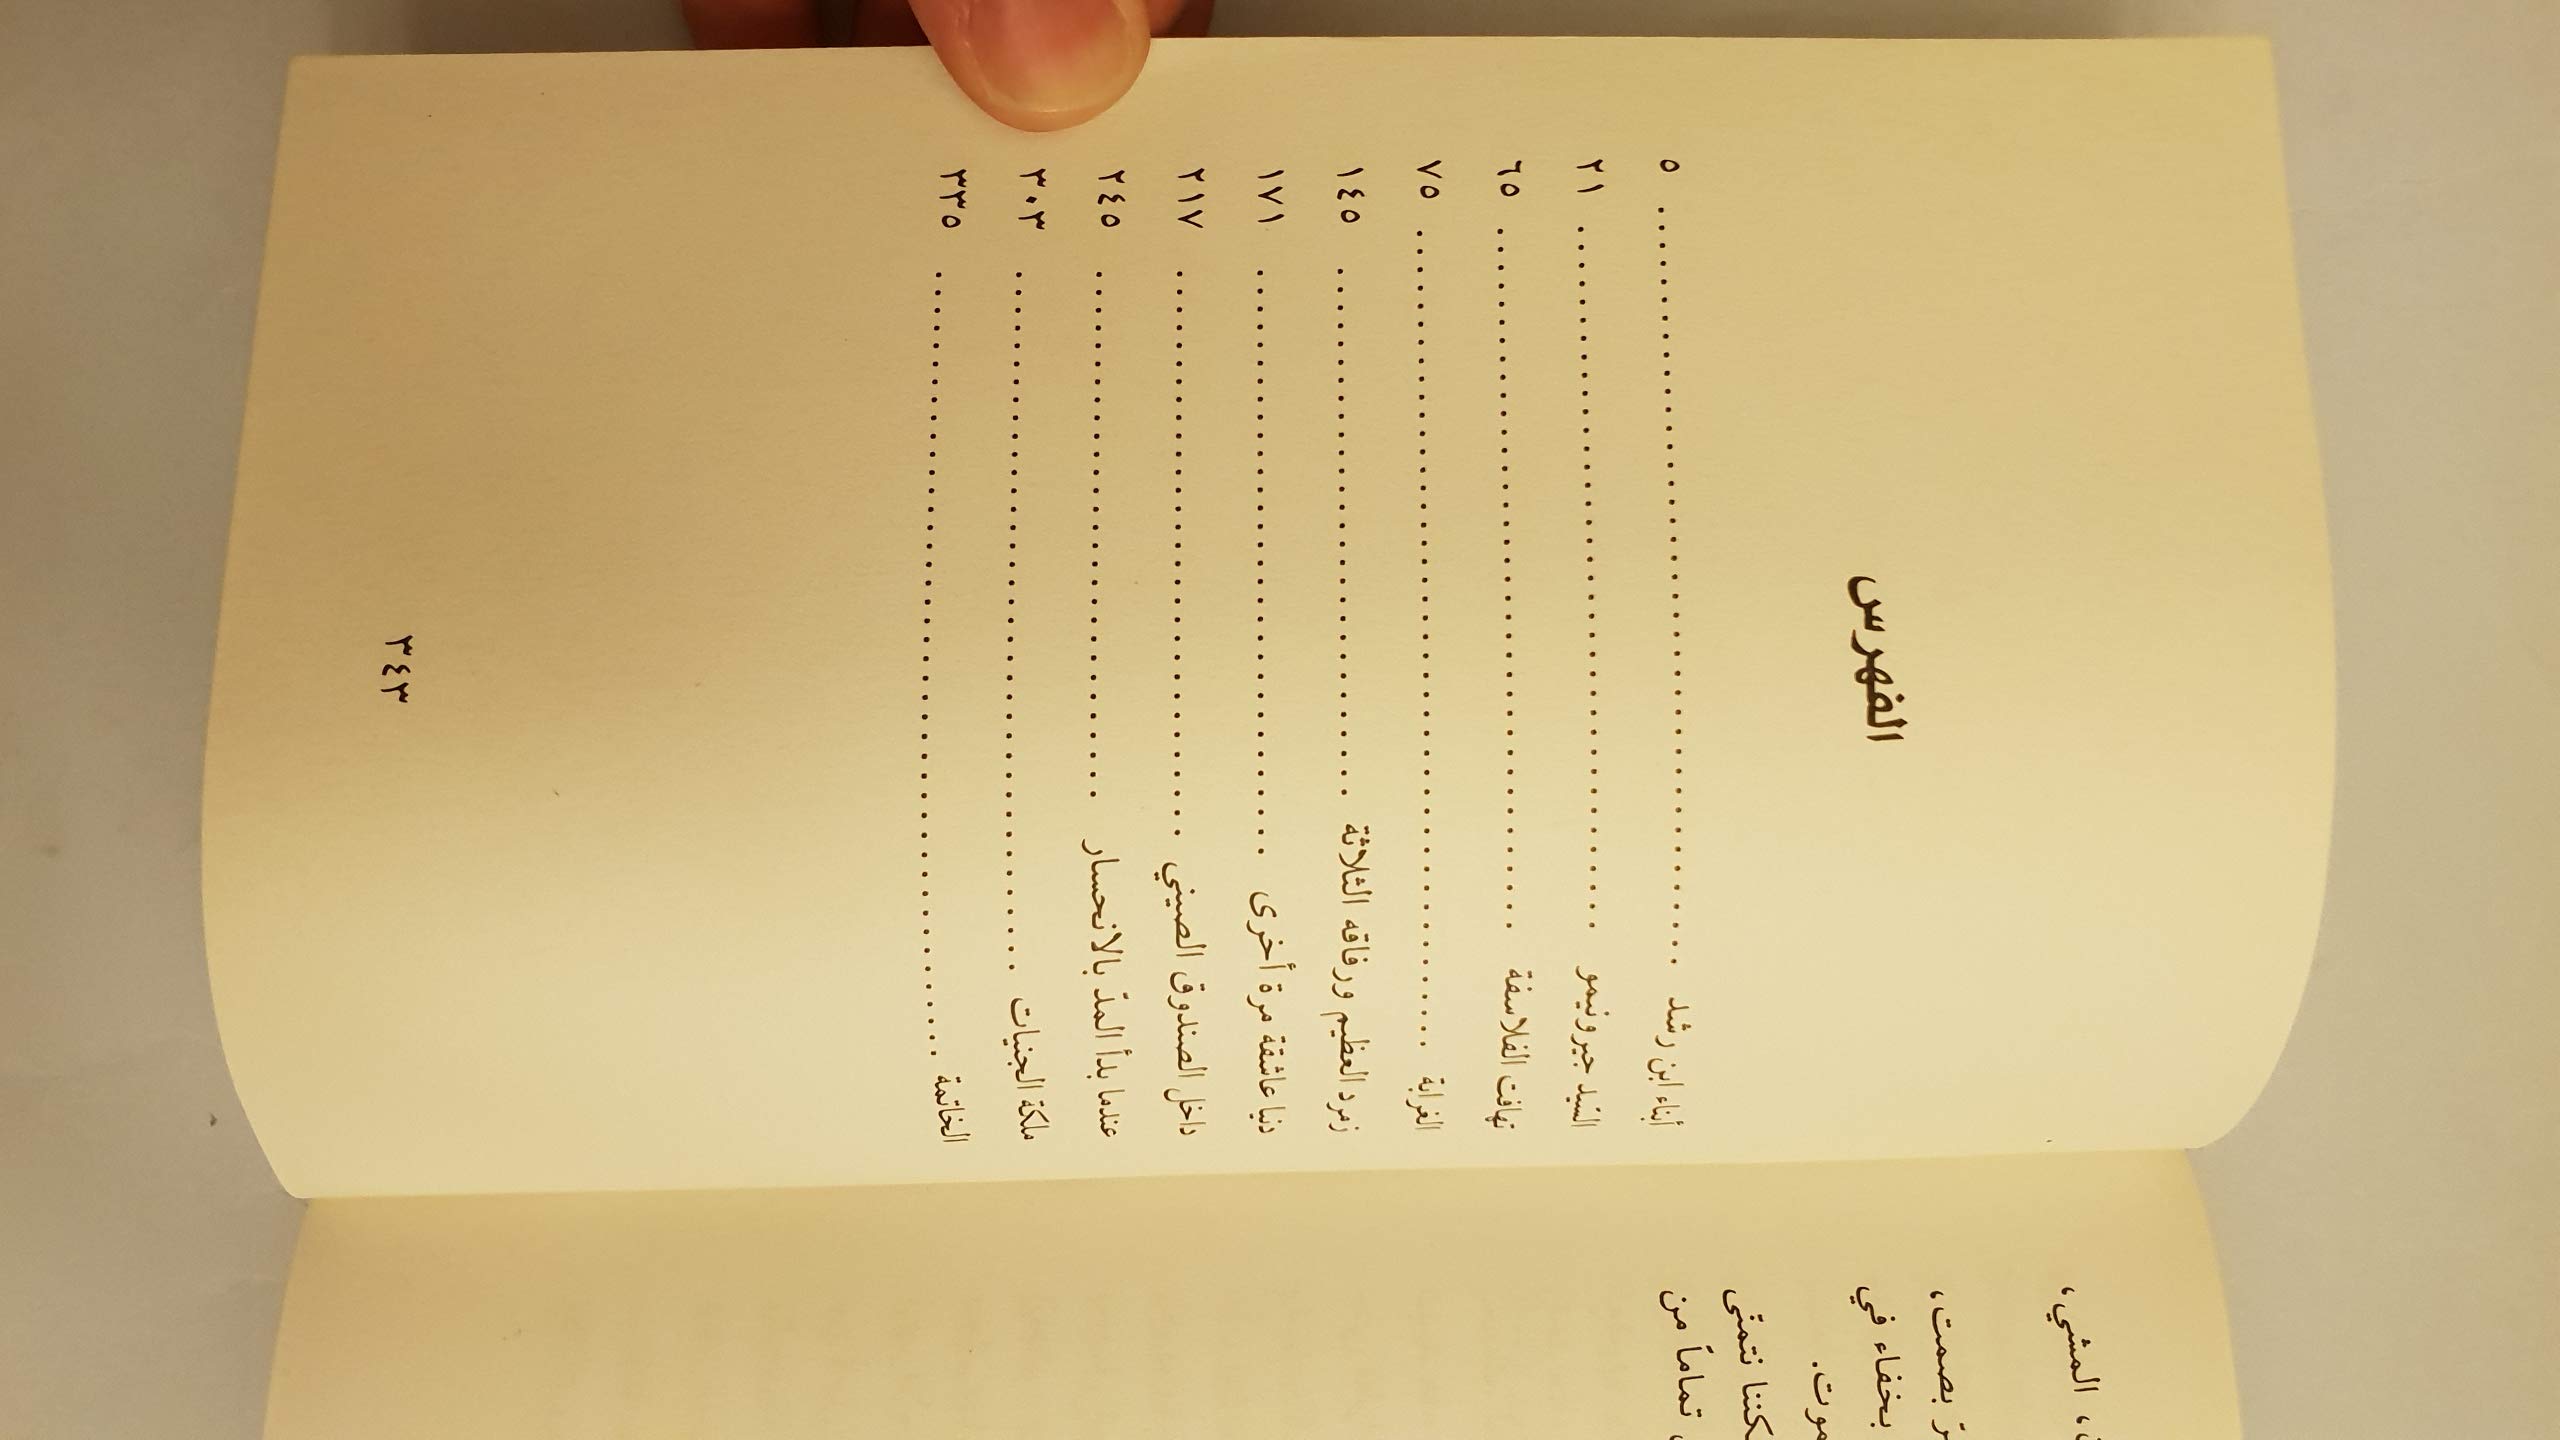 الفهرس
أبناء ابن رشد ........................................ ٥
السّيد جيرونيمو ........................................ ٢١
تهافت الفلاسفة ........................................ ٦٥
الغرابة ........................................ ٧٥
زمرد العظيم ورفاقه الثلاثة ........................................ ١٤٥
دنيا عاشقة مرة أخرى ........................................ ١٧١
داخل الصندوق الصيني ........................................ ٢١٧
عندما بدأ المدّ بالانحسار ........................................ ٢٤٥
ملكة الجنيات ........................................ ٣٠٣
الخاتمة ........................................ ٣٣٥
٣٤٣
المشي،
بصمت،
بخفاء في
نتمنّى
تماماً من